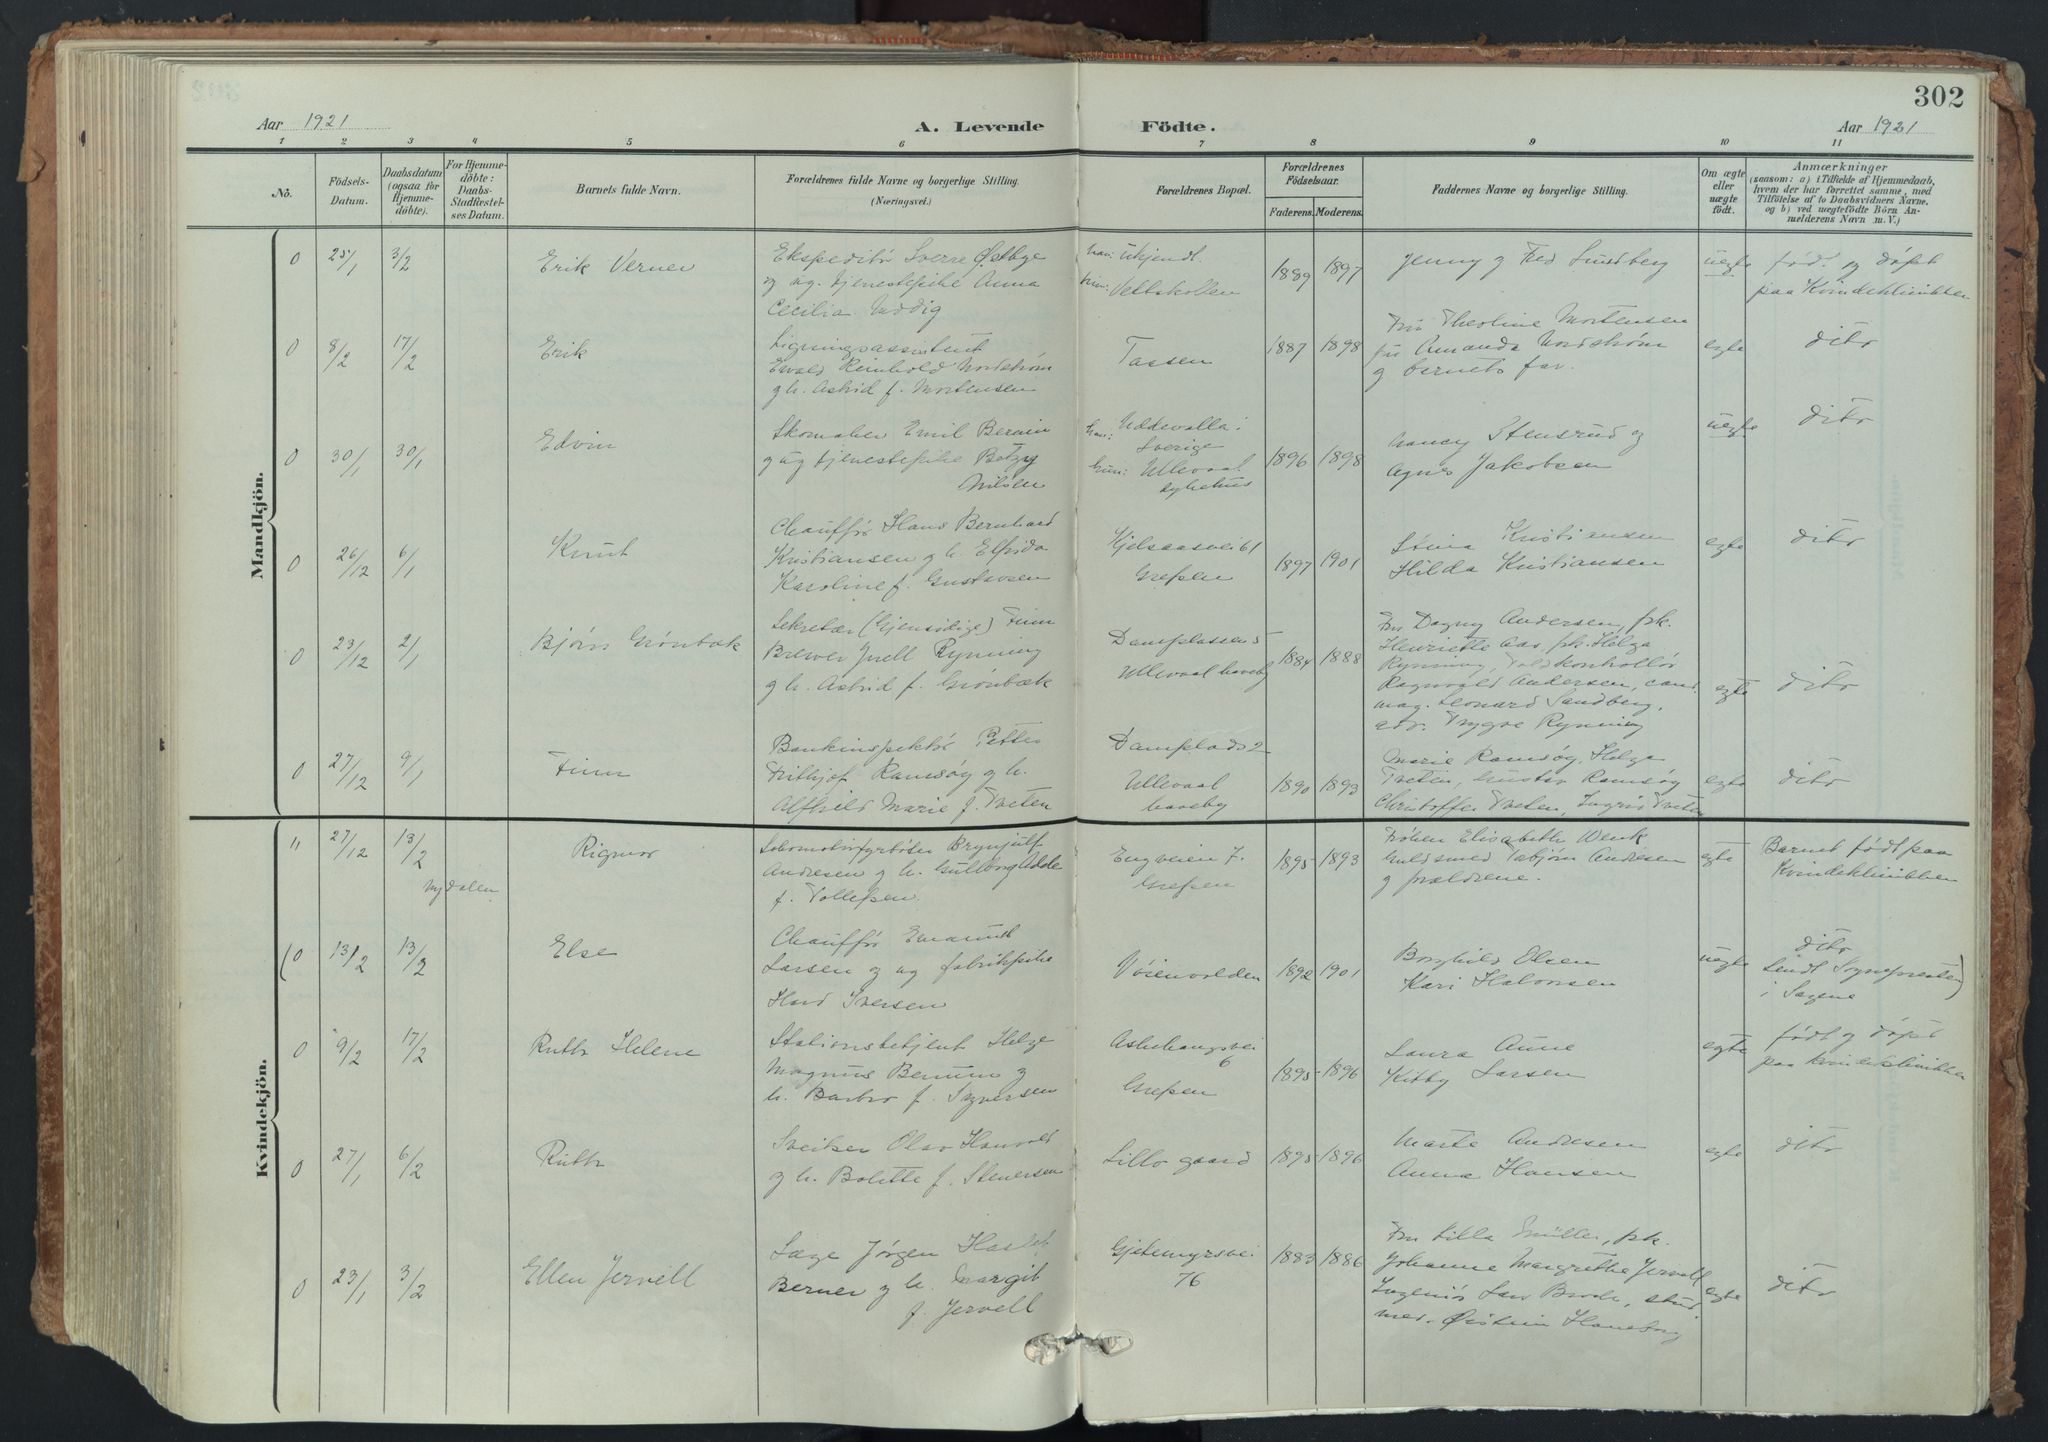 302
Aar 1921
A. Levende Födte.
Aar 1921
1 2 3 4 5 6 7 8 9 10 11
No.
Födsels-
Datum.
Daabsdatum
(ogsaa for
Hjemme-
döbte).
For Hjemme-
döbte:
Daabs-
Stadfæstel-
ses Datum.
Barnets fulde Navn.
Forældrenes fulde Navne og borgerlige Stilling.
(Næringsvei.)
Forældrenes Bopæl.
Forældrenes
Födselsaar.
Faderens. Moderens.
Faddernes Navne og borgerlige Stilling.
Om ægte
eller
uægte
födt.
Anmærkninger
(saasom: a) i Tilfælde af Hjemmedaab,
hvem der har forrettet samme, med
Tilföielse af to Daabsvidners Navne,
og b) ved uægtefödte Börn An-
melderens Navn m. V.)
Mandkjön.
0 25/1 3/2
Erik Verner
Ekspeditør Sverre Østbye
og ug. tjenestepike Anna
Cecilia
han: Ukjendt.
hun: Vettakollen
1889 1897
Jenny og Fred Lundberg
uegte
født og døpt
paa Kvindeklinikken
0 8/2 17/2
Erik
Ligningsassistent
Ewald Reinhold Nordstrøm
g h. Astrid f. Mortensen
Tassen
1887 1898
Fru Theoline Mortensen
fru Amanda Nordstrøm
og barnets far.
egte
dito
0 30/1 30/1
Edvin
Skomaker Emil
og ug tjenestepike Betzy
Nilsen
han: Uddevalla i
Sverige
hun: Ullevaal
sykehus
1896 1898
Nancy Stensrud og
Agnes Jakobsen
uegte
dito
0 26/12 6/1
Knut
Chauffør Hans Bernhard
Kristiansen g h. Elfrida
Karoline f. Gustavsen
Kjelsaasvei 61
Grefsen
1897 1901
Stina Kristiansen
Hilda Kristiansen
egte
dito
0 23/12 2/1
Bjørn Grønbæk
Sekretær (Gjensidige) Finn
Brewer Juell Rynning
g h. Astrid f. Grønbæk
Damplassen 5
Ullevaal haveby
1884 1888
Fru Dagny Andersen, frk.
Henriette Aas, frk. Helga
Rynning, Toldkontrollør
Ragnvald Andersen, cand.
mag. Leonard Sandberg,
adv. Trygve Rynning
egte
dito
0 27/12 9/1
Finn
Bankinspektør Petter
Frithjof Ramsøy g h.
Alfhild Marie f. Tveten
Damplads 2
Ullevaal
haveby
1890 1893
Marie Ramsøy, Helga
Tveten, Gustav Ramsøy
Christoffer Tveten, Ingrid Tveten
egte
dito
Kvindekjön.
" 27/12 13/2
Nydalen
Rigmor
Lokomotivfyrbøter Brynjulf
Andresen g h. Gullborg Adele
f. Tollefsen.
Engveien 7.
Grefsen
1895 1893
Frøken Elisabeth Wenk
Guldsmed Torbjørn Andresen
og forældrene.
egte
Barnet født paa
Kvindeklinikken
(0 13/2 13/2
Else
Chauffør Emanuel
Larsen og ug fabrikpike
Iversen
Vøienvolden
1892 1901
Borghild Olsen
Kari Halvorsen
uegte
dito
Sendt Sogneprესten)
i Sagene
0 9/2 17/2
Ruth Helene
Stationsbetjent Helge
Magnus Berum g
h. Barbro f. Syversen
Askehaugsvei
6
Grefsen
1895 1896
Laura Aune
Kitty Larsen
egte
født og døpt
paa Kvindeklinikken
0 27/1 6/2
Ruth
Sveitser Olav
g h. Bolette f. Stenersen
Lillo gaard
1895 1896
Marte Andresen
Anna Hansen
egte
dito
0 23/1 3/2
Ellen Jervell
Læge Jørgen Haslef
Berner g h. Margit
f. Jervell
Gjetemyrsvei
76
1883 1886
Fru Lilla Müller, frk.
Johanne Margrethe Jervell
Ingeniør Lars Brode, stud.
med. Øistein Haneborg
egte
dito